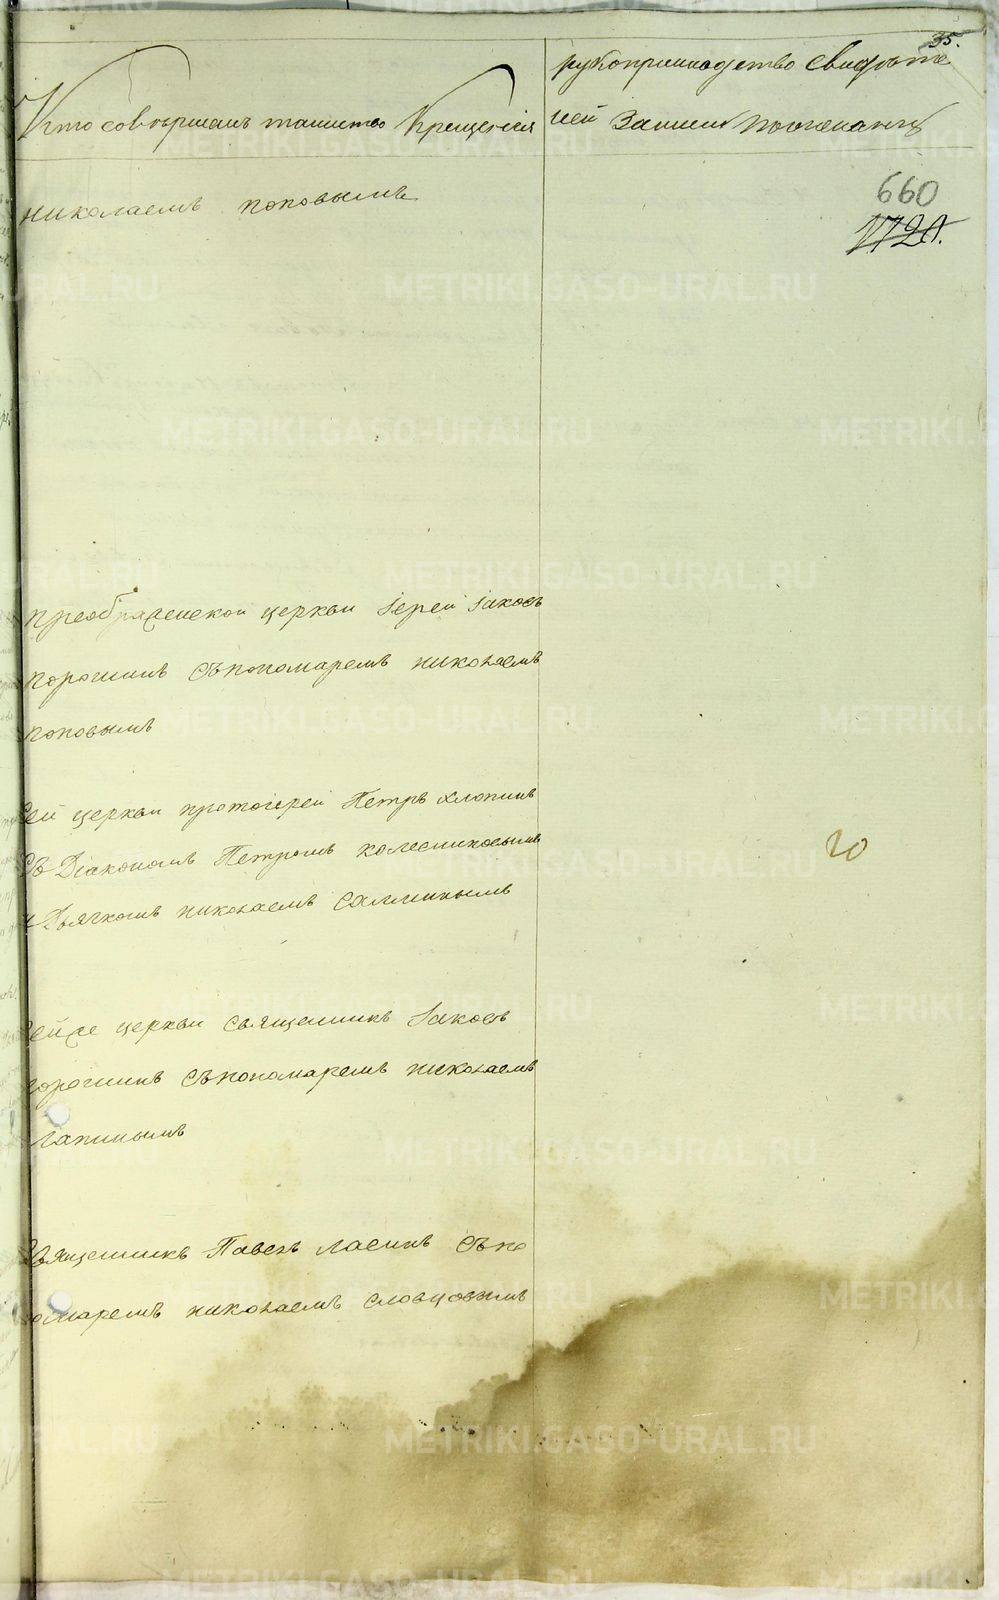 35.
Кто совершалъ таинство Крещенiя
рукоприкладство свидѣте
лей записи по желанiю
николаемъ поповымъ
660
1720.
преображенской церкви iерей iаковъ
порошинъ съ пономаремъ николаемъ
поповымъ
сей церкви протоiерей Петръ хлопинъ
съ Дiакономъ Петромъ колесниковымъ
и Дьячкомъ николаемъ
20
сейже церкви священникъ iаковъ
порошинъ съ пономаремъ николаемъ
лапинымъ
священникъ Павелъ ласинъ съ по
номаремъ николаемъ словцовымъ
METRIKI.GASO-URAL.RU